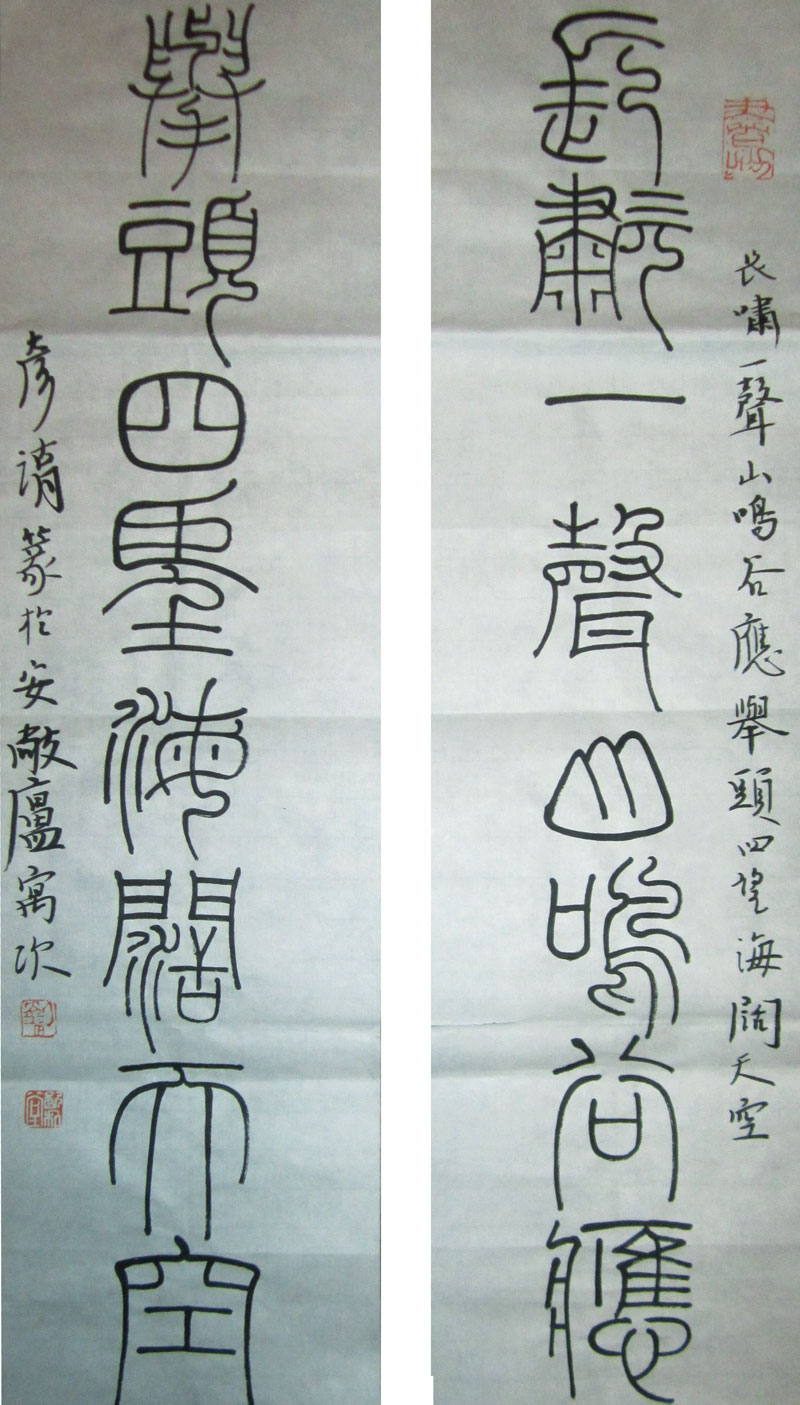 長嘯一聲山鳴谷應舉頭四望海闊天空
長歗一聲山鳴谷應
舉頭四望海闊天空
彥清篆於安敲廬寓次